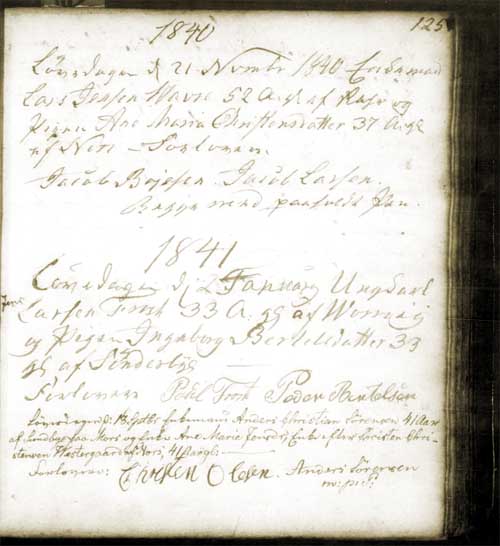 1840
125
Løverdagen d 21 Novembr 1840 Enkemand
Lars Jensen 52 A. gl af og
Pigen Ane Maria Christensdatter 37 A. gl
af Nees – Forlovere.
Jacob Bojesen. Jacob Larsen.
1841
Løverdagen d 2 Januarÿ Ungkarl
Jens
Larsen Trosk 33 A. gl af
og Pigen Ingeborg Bertelsdatter 33
gl af Sønderbÿe
Forlovere Pohl Trosk Peder Bertelsen
Løverdagen d: 18 Enkemand Anders Christian Sørensen, 41 Aar
af Sundbye paa Mors og Enke Ane Marie Jensd: Enke efter Christen Chri-
stensen Westergaard af Nors, 41 Aar gl:
Forlovere: Christen Olesen. Anders Sørensen
m: p: